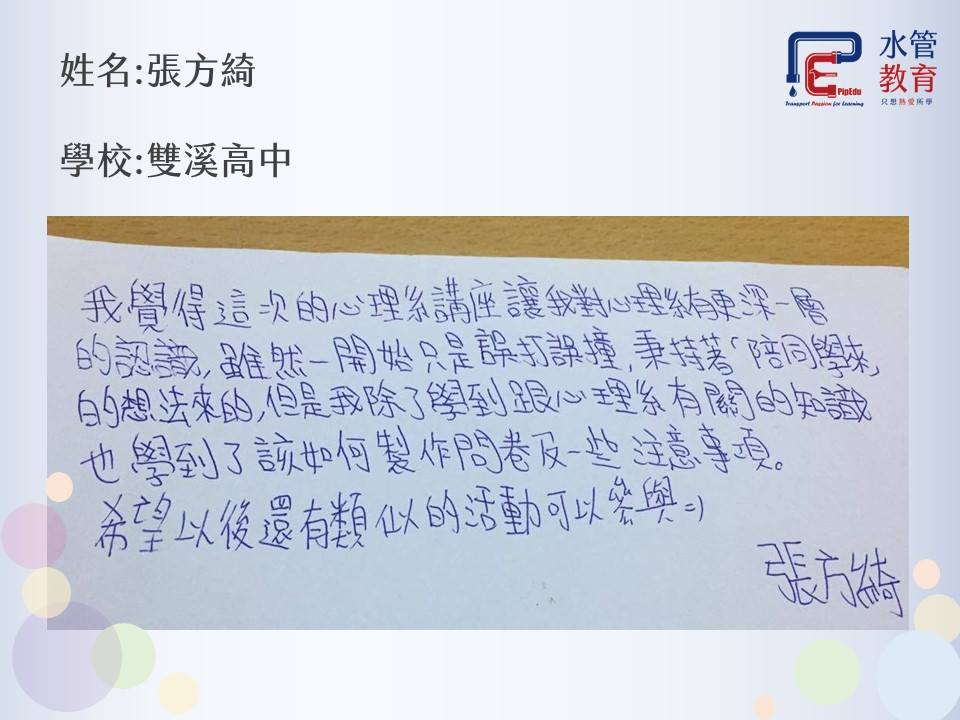 姓名:張方綺
水管
教育
PipEdu
Transport Passion for Learning
只想熱愛所學
學校:雙溪高中
我覺得這次的心理系講座讓我對心理系有更深一層
的認識,雖然一開始只是誤打誤撞,秉持著「陪同學來」
的想法來的,但是我除了學到跟心理系有關的知識
也學到了該如何製作問卷及一些注意事項。
希望以後還有類似的活動可以參與=)
張方綺